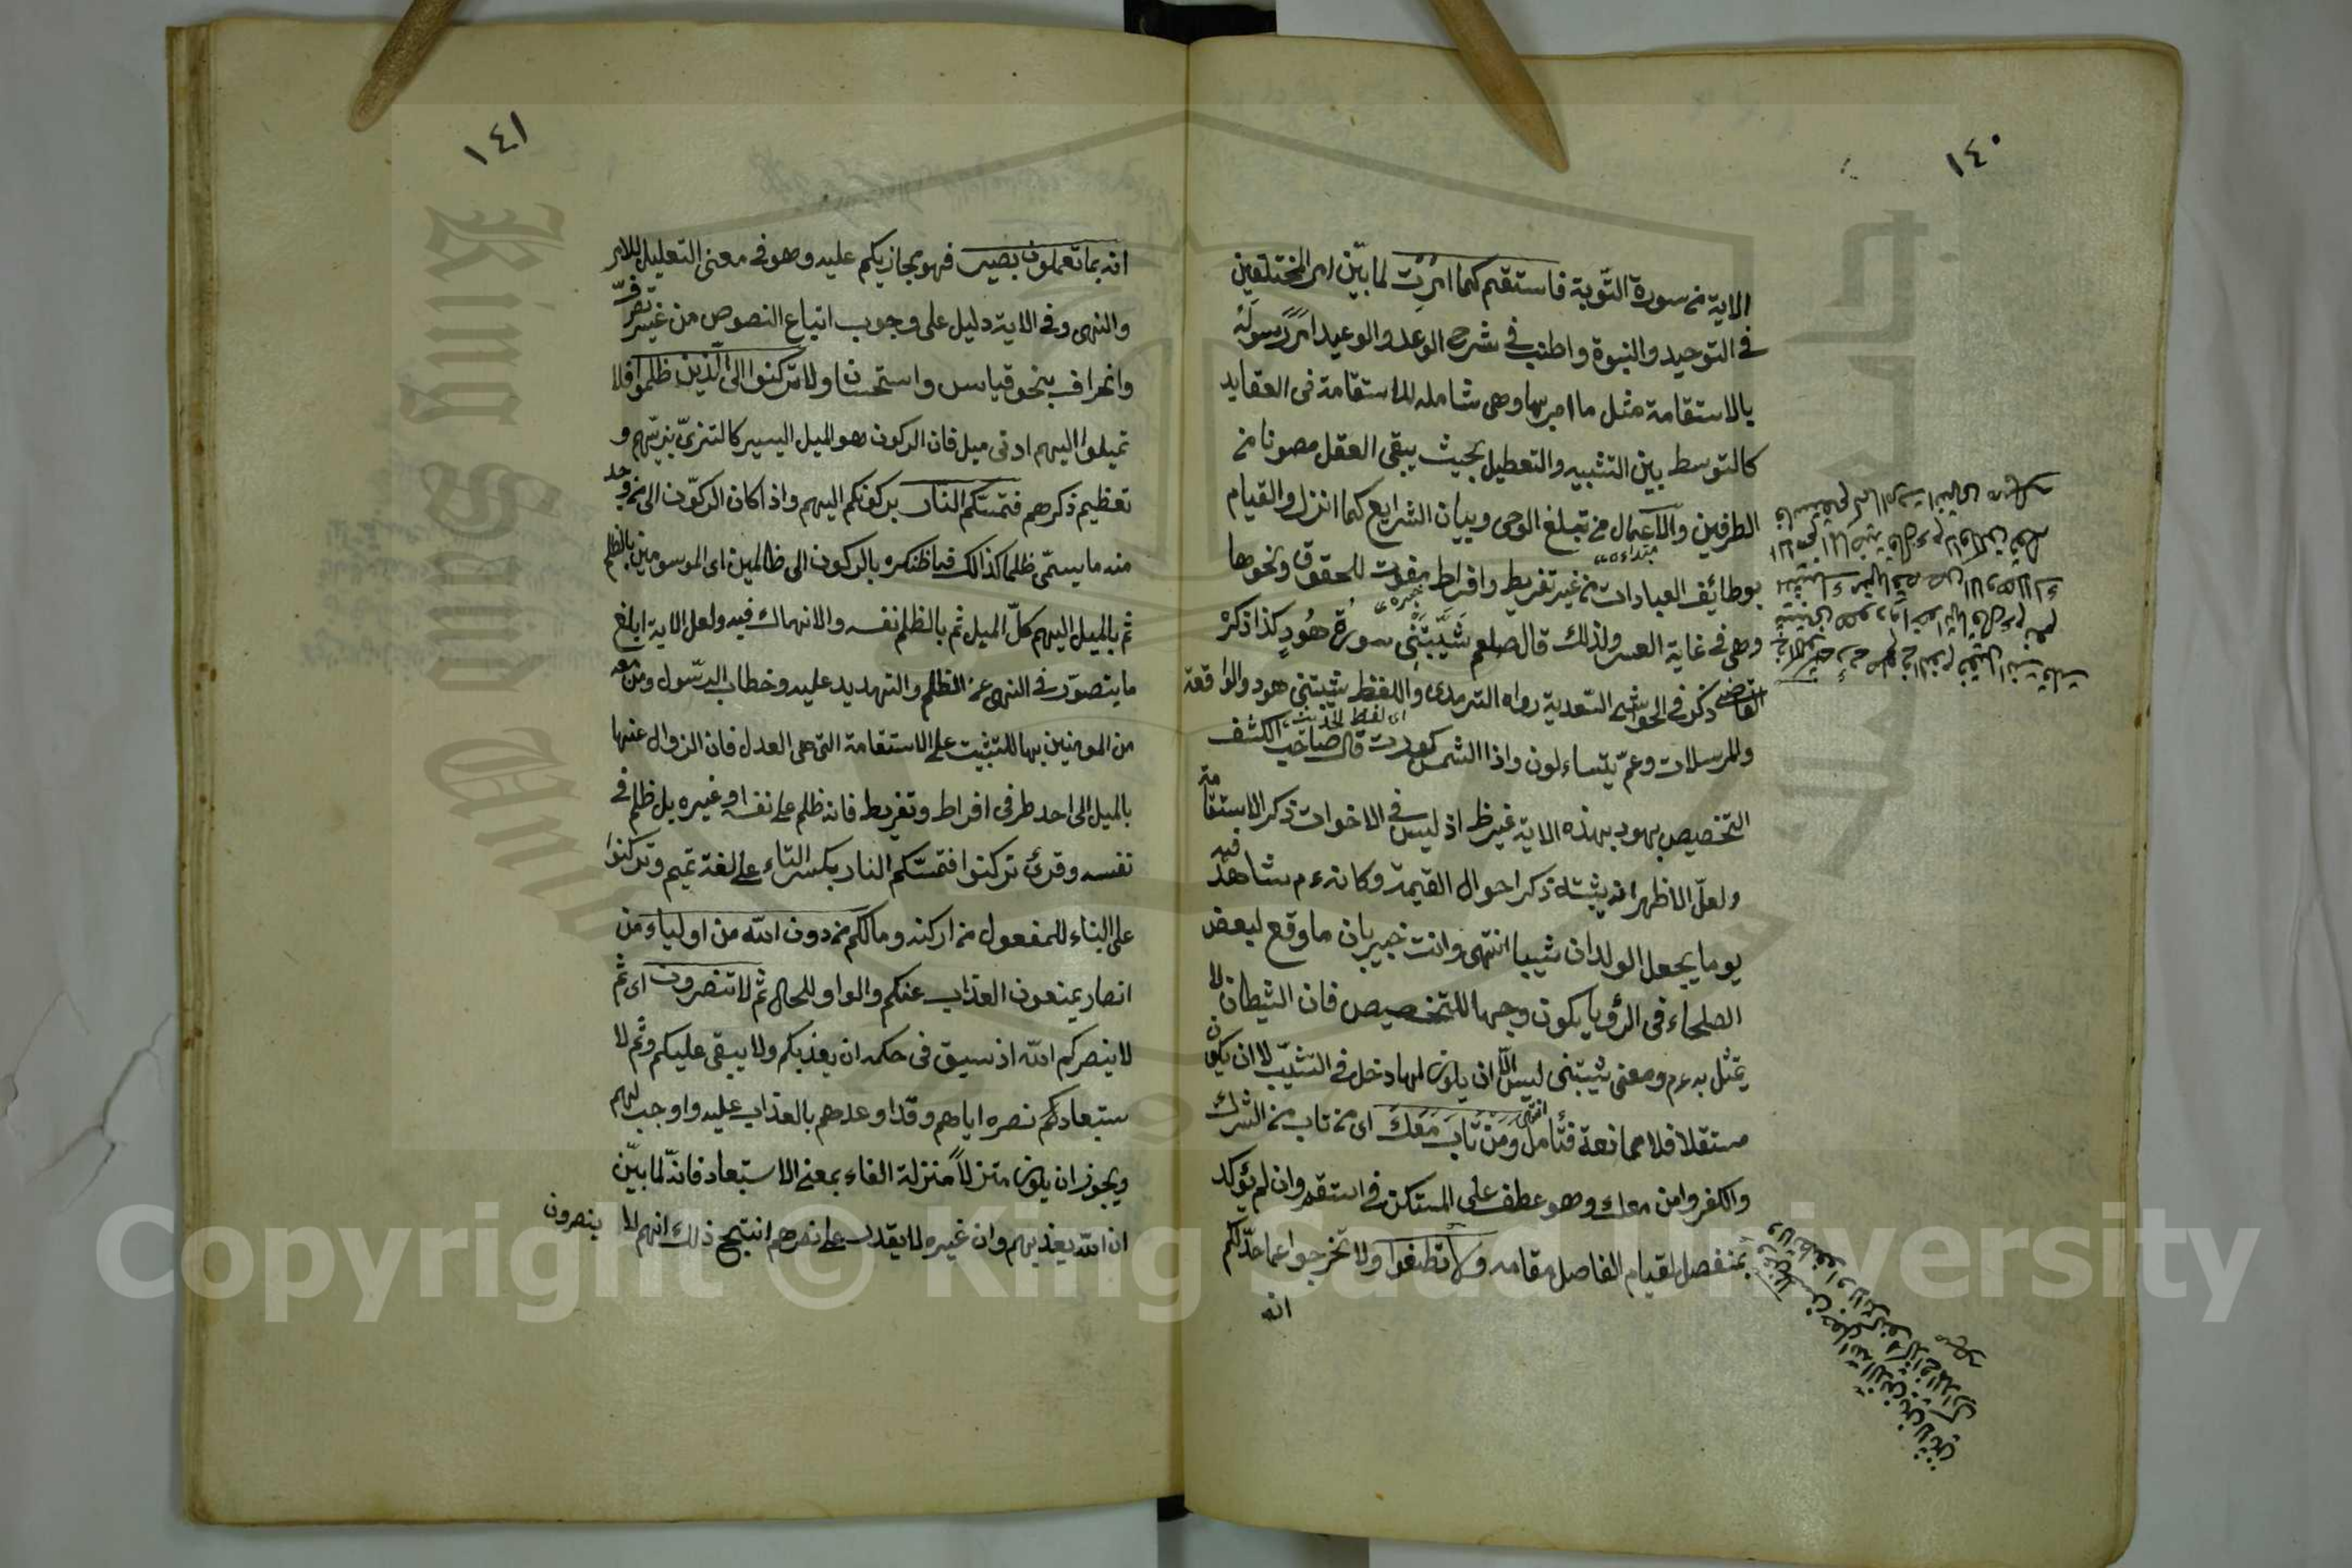 ١٤٠
الاية من سورة التّوبة فاستقم كما امرت لما بيّن امر المختلفين
في التوحيد والنبوة واطنب في شرح الوعد والوعيد امر رسوله
بالاستقامة مثل ما امر بها وهى شاملة للاستقامة فى العقايد
كالتوسط بين التشبيه والتعطيل بحيث يبقى العقل مصونا من
الطرفين والاعمال من تبليغ الوحى وبيان الشرايع كما انزل والقيام
بوظائف العبادات من غير تفريط وافراط مفوت للحقوق ونحوها
وهى في غاية العسر ولذلك قال صلعم شَيَّبَتْنِى سورة هُودٍ كذا ذكره
القاضى ذكر في الحواشى السّعدية رواه الترمدى واللفظ شيبتنى هود والواقعة
اى لفظ الحديث
والمرسلات وعمّ يتساءلون واذا الشمس كورت قال صاحب الكشف
التخصيص بهود بهذه الاية غير ظ اذ ليس في الاخوات ذكر الاستقامة
ولعلّ الاظهر انه شيّبته ذكر احوال القيمة وكانه ءم شاهد فيه
يوما يجعل الولدان شيبا انتهى وانت خبير بان ما وقع لبعض
الصلحاء فى الرؤيا يكون وجها للتخصيص فان الشيطان لا
يتمثّل به ءم ومعنى شيّبتنى ليس الّا ان يكون لها دخل في التشيّب لا ان يكون
مستقلا فلا ممانعة فتأمل انتهى وَمَنْ تَابَ مَعَكَ اى من تاب من الشرك
والكفر وامن معك وهو عطف على المستكن في استقم وان لم يؤكد
بمنفصل لقيام الفاصل مقامه ولا تطغوا ولا تخرجوا عما حدّ لكم
انه
١٤١
انه بما تعملون بصير فهو مجازيكم عليه وهو في معنى التعليل للامر
والنهى وفي الاية دليل على وجوب اتباع النصوص من غير تصرّف
وانحراف بنحو قياس واستحسان ولا تركنوا الى الّذين ظلموا فلا
تميلوا اليهم ادنى ميل فان الركون هو الميل اليسير كالتزىّ بزيّهم و
تعظيم ذكرهم فتمسّكم النار بركونكم اليهم واذا كان الركون الى من وجد
منه ما يسمّى ظلما كذالك فما ظنك بالركون الى ظالمين اى الموسومين بالظلم
ثم بالميل اليهم كلّ الميل ثم بالظلم نفسه والانهماك فيه ولعل الاية ابلغ
ما يتصوّر في النهى عن الظلم والتهديد عليه وخطاب الرّسول ومن معه
من المومنين بها للتثبيت على الاستقامة التى هى العدل فان الزوال عنها
بالميل الى احد طرفى افراط وتفريط فانه ظلم على نفسه او غيره بل ظلم في
نفسه وقرئ تركنوا فتمسّكم النار بكسر التاء على لغة تميم وتركنوا
على البناء للمفعول من اركنه وما لكم من دون الله من اولياء من
انصار يمنعون العذاب عنكم والواو للحال ثم لا تنصرون اى ثم
لا ينصركم الله اذ سبق فى حكمه ان يعذبكم ولا يبقى عليكم وثم لا
ستبعاد نصره اياهم وقد اوعدهم بالعذاب عليه واوجب لهم
ويجوز ان يكون منزلاً منزلة الفاء بمعنى الاستبعاد فانّه لما بيّن
ان الله يعذبهم وان غيره لا يقدر على نصرهم انتج ذلك انهم لا ينصرون